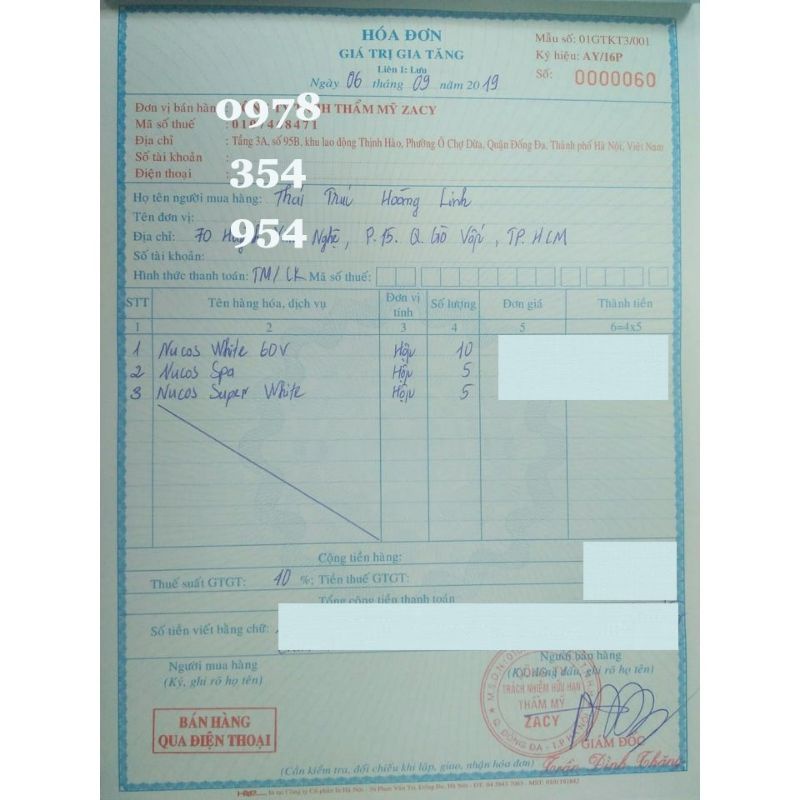 HÓA ĐƠN
GIÁ TRỊ GIA TĂNG
Liên 1: Lưu
Ngày 06 tháng 09 năm 2019
Mẫu số: 01GTKT3/001
Ký hiệu: AY/16P
Số: 0000060
0978
354
954
Đơn vị bán hàng THẨM MỸ ZACY
Mã số thuế
Địa chỉ : Tầng 3A, số 95B, khu lao động Thịnh Hào, Phường Ô Chợ Dừa, Quận Đống Đa, Thành phố Hà Nội, Việt Nam
Số tài khoản :
Điện thoại :
Họ tên người mua hàng: Thái Trúc Hoàng Linh
Tên đơn vị:
Địa chỉ: 70 Nghệ, P.15. Q. Gò Vấp, TP. HCM
Số tài khoản:
Hình thức thanh toán: TM/CK Mã số thuế:
STT Tên hàng hóa, dịch vụ Đơn vị tính Số lượng Đơn giá Thành tiền
1 2 3 4 5 6=4x5
1 Nucos White 60V Hộp 10
2 Nucos Spa Hộp 5
3 Nucos Super White Hộp 5
Cộng tiền hàng:
Thuế suất GTGT: 10 %; Tiền thuế GTGT:
Tổng cộng tiền thanh toán
Số tiền viết bằng chữ:
Người mua hàng
(Ký, ghi rõ họ tên)
Người bán hàng
(Ký, đóng dấu, ghi rõ họ tên)
BÁN HÀNG
QUA ĐIỆN THOẠI
CÔNG TY
TRÁCH NHIỆM HỮU HẠN
THẨM MỸ
ZACY
Q. ĐỐNG ĐA - T.P HÀ NỘI
GIÁM ĐỐC
Trần Đình Thắng
(Cần kiểm tra, đối chiếu khi lập, giao, nhận hóa đơn)